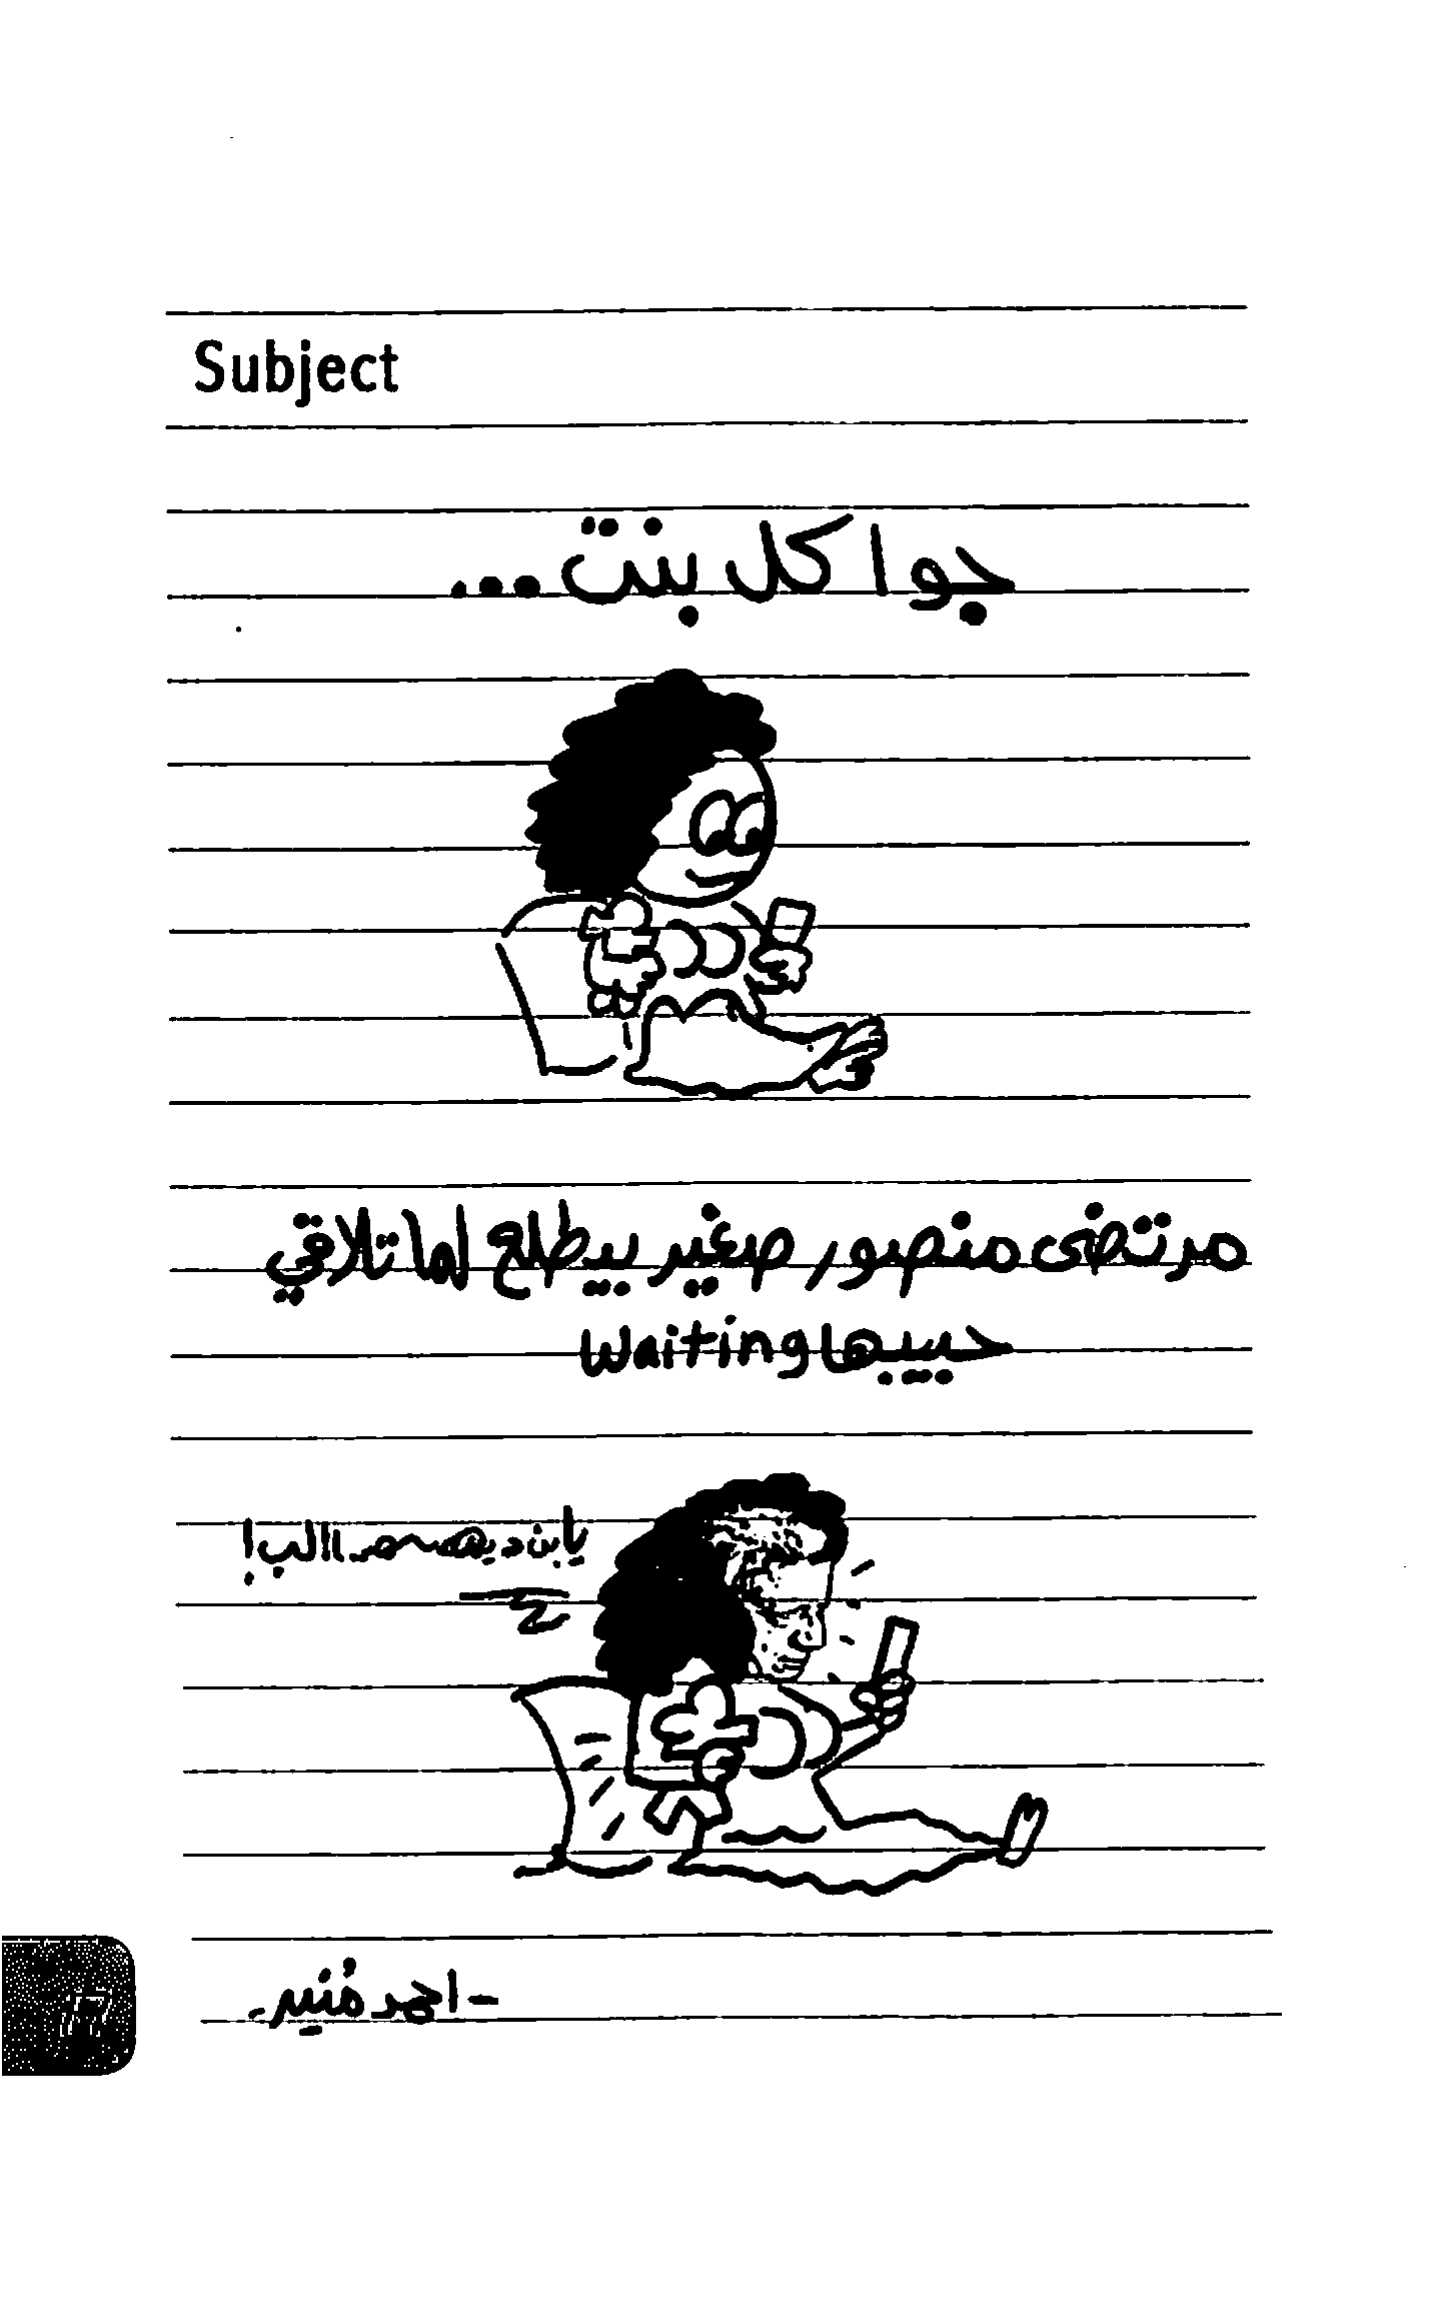 Subject
جوا كل بنت ...
مرتضى منصور صغير بيطلع لما تلاقي
حبيبها Waiting
يا ابن
- احمد مُنير -
17